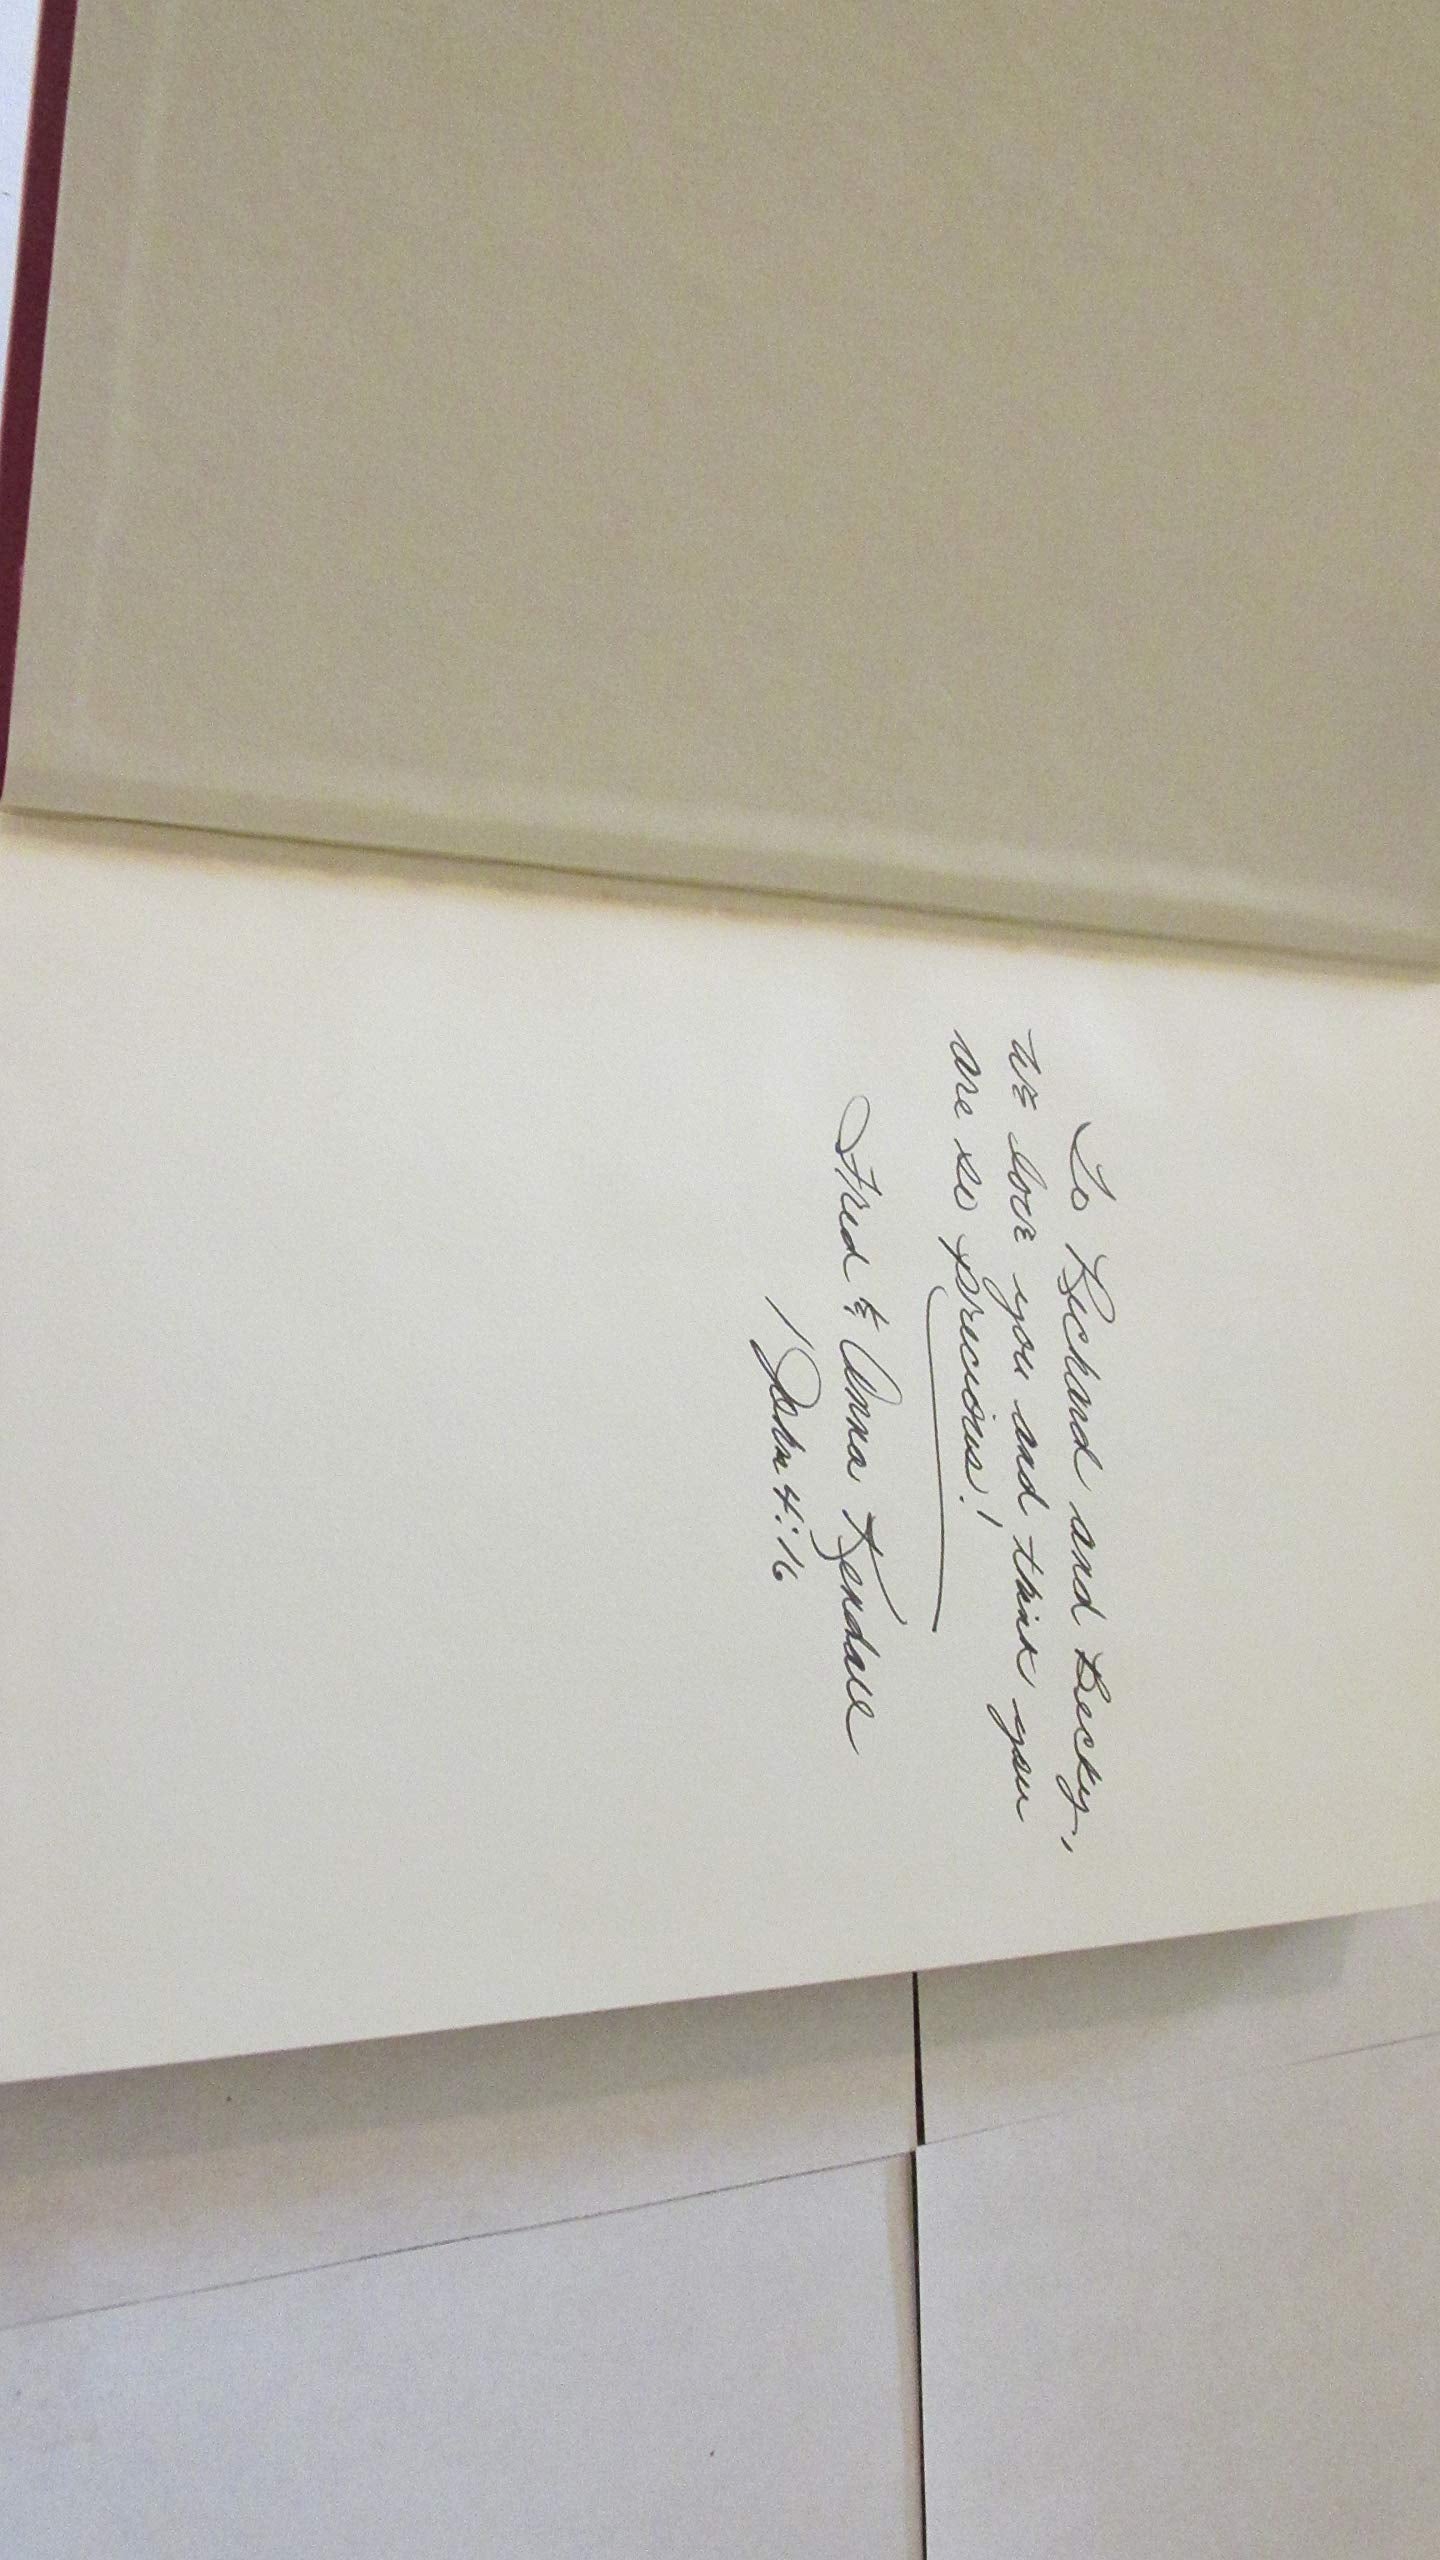 To Richard and Becky,
we love you and think you
are so precious!
Fred & Anna Kendall
1 John 4:16